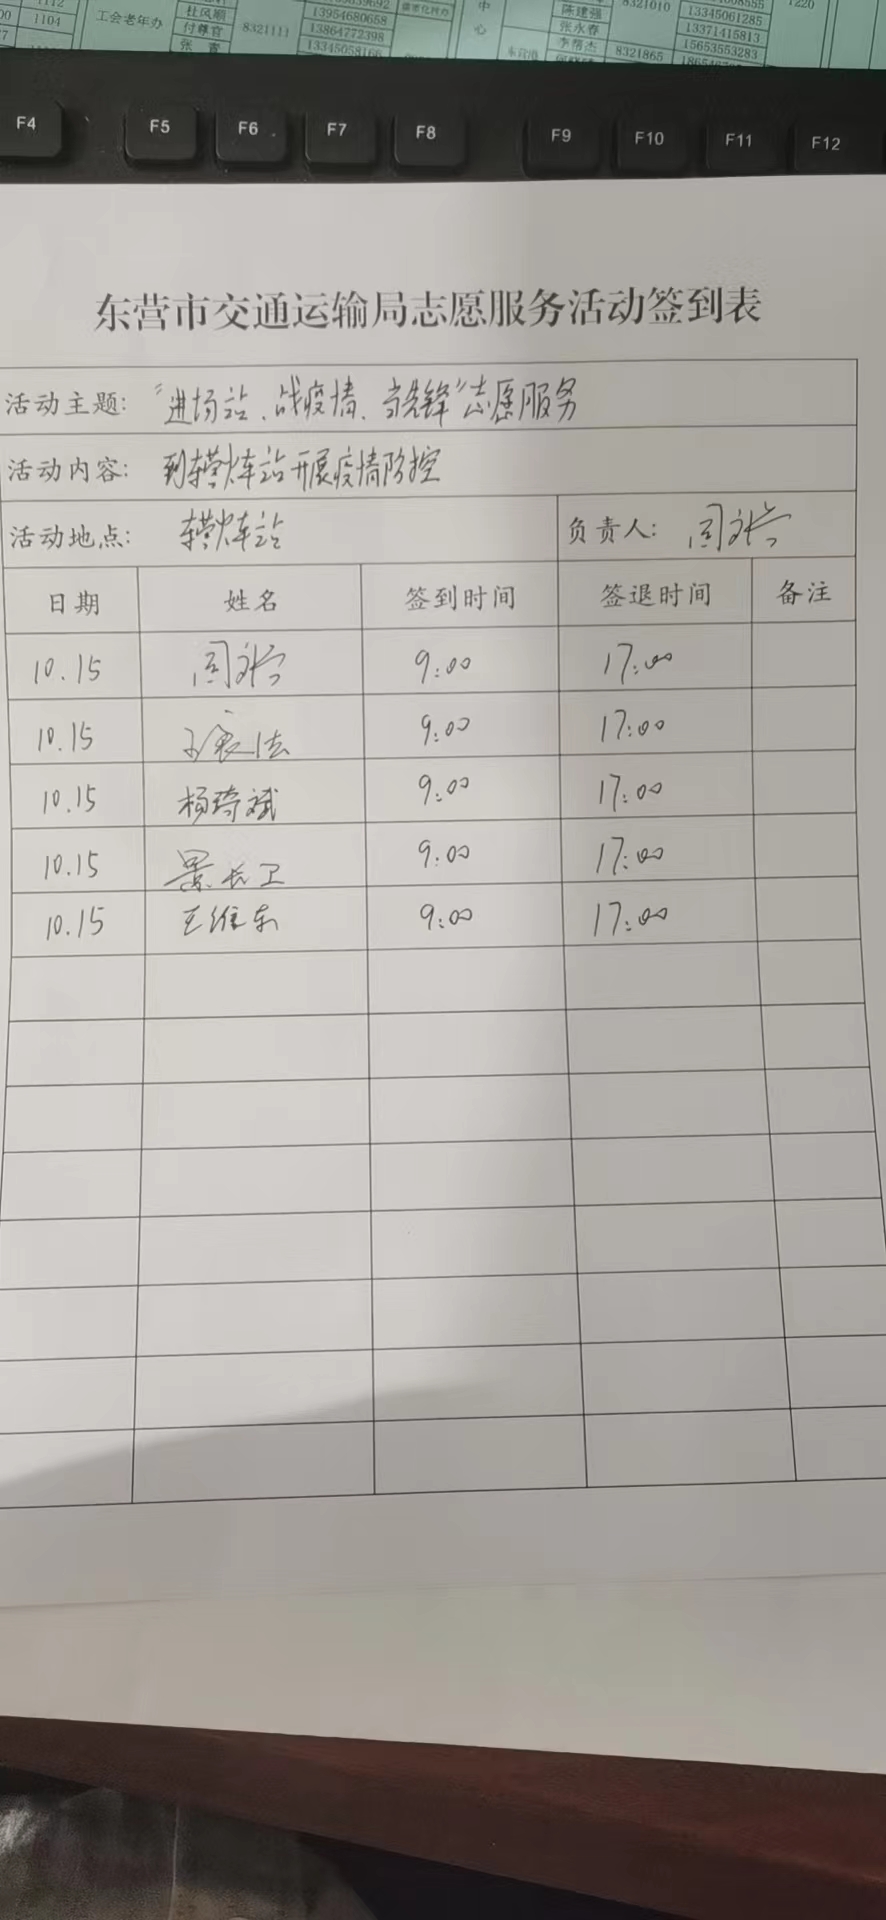 1112
1104
工会老年办
杜凤顺
付尊官
8321111
13954680658
13864772398
13345058166
中
心
陈建强
张永春
李帮杰
8321010
8321865
13345061285
13371415813
15653553283
1220
F4 F5 F6 F7 F8 F9 F10 F11 F12
东营市交通运输局志愿服务活动签到表
活动主题: “进场站、战疫情、当先锋”志愿服务
活动内容: 到东营火车站开展疫情防控
活动地点: 东营火车站 负责人: 周
日期 姓名 签到时间 签退时间 备注
10.15 周 9:00 17:00
10.15 9:00 17:00
10.15 杨琦斌 9:00 17:00
10.15 景长卫 9:00 17:00
10.15 王维东 9:00 17:00